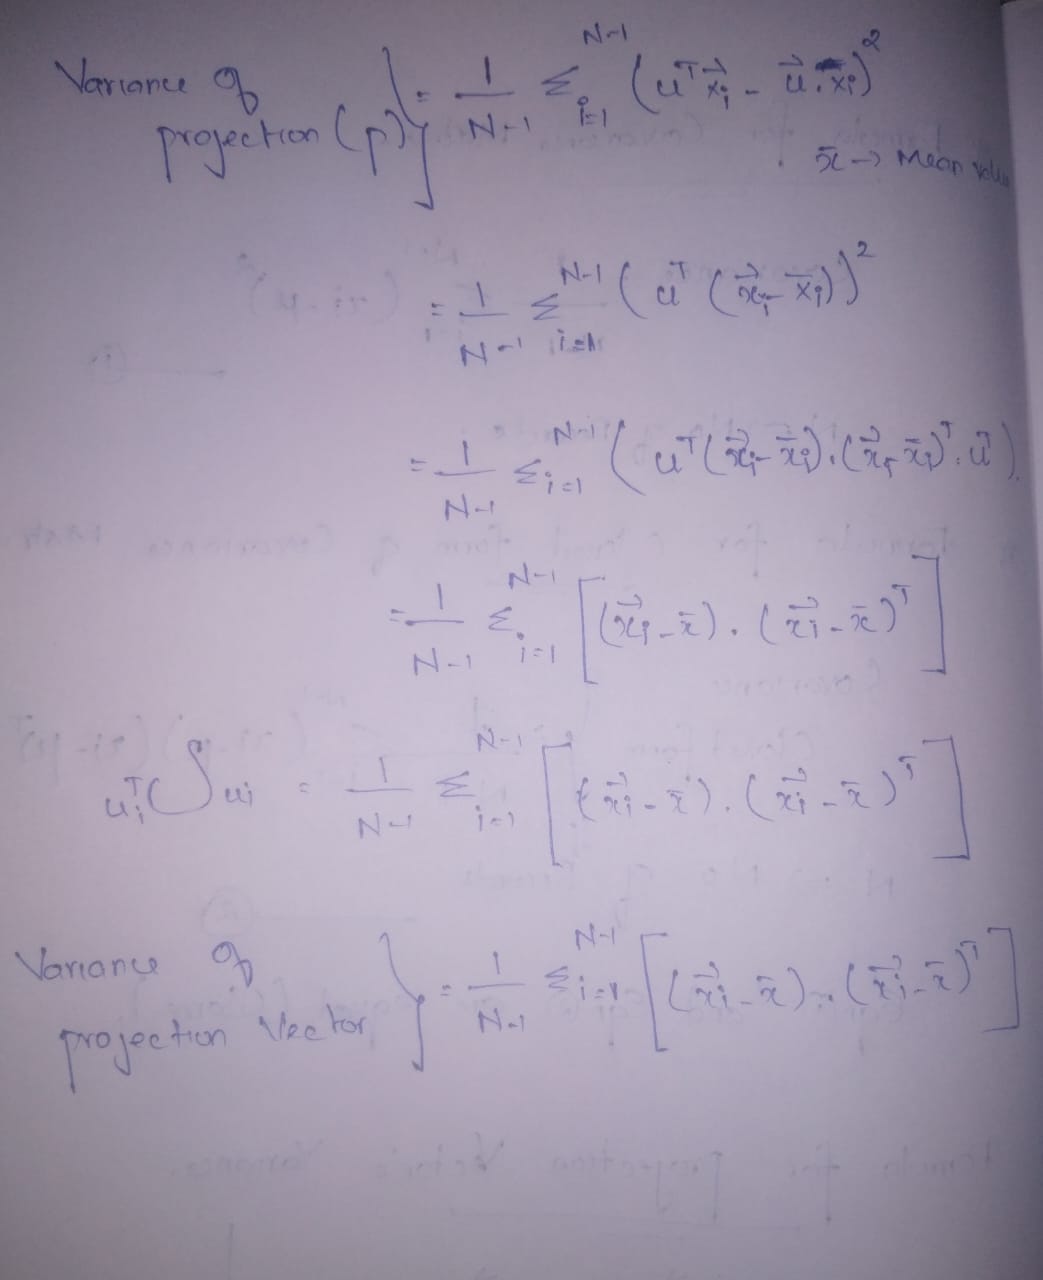 Variance of projection (p)} = 1/N-1 Σ_{i=1}^{N-1} (u^T x⃗_i - u⃗.x̄_i)^2
x̄ → Mean value
= 1/N-1 Σ_{i=1}^{N-1} (u^T (x⃗_i - x̄_i))^2
= 1/N-1 Σ_{i=1}^{N-1} (u^T (x⃗_i - x̄_i).(x⃗_i - x̄_i)^T.u⃗)
= 1/N-1 Σ_{i=1}^{N-1} [(x⃗_i - x̄).(x⃗_i - x̄)^T]
u_i^T S u_i = 1/N-1 Σ_{i=1}^{N-1} [(x⃗_i - x̄).(x⃗_i - x̄)^T]
Variance of projection Vector} = 1/N-1 Σ_{i=1}^{N-1} [(x⃗_i - x̄).(x⃗_i - x̄)^T]